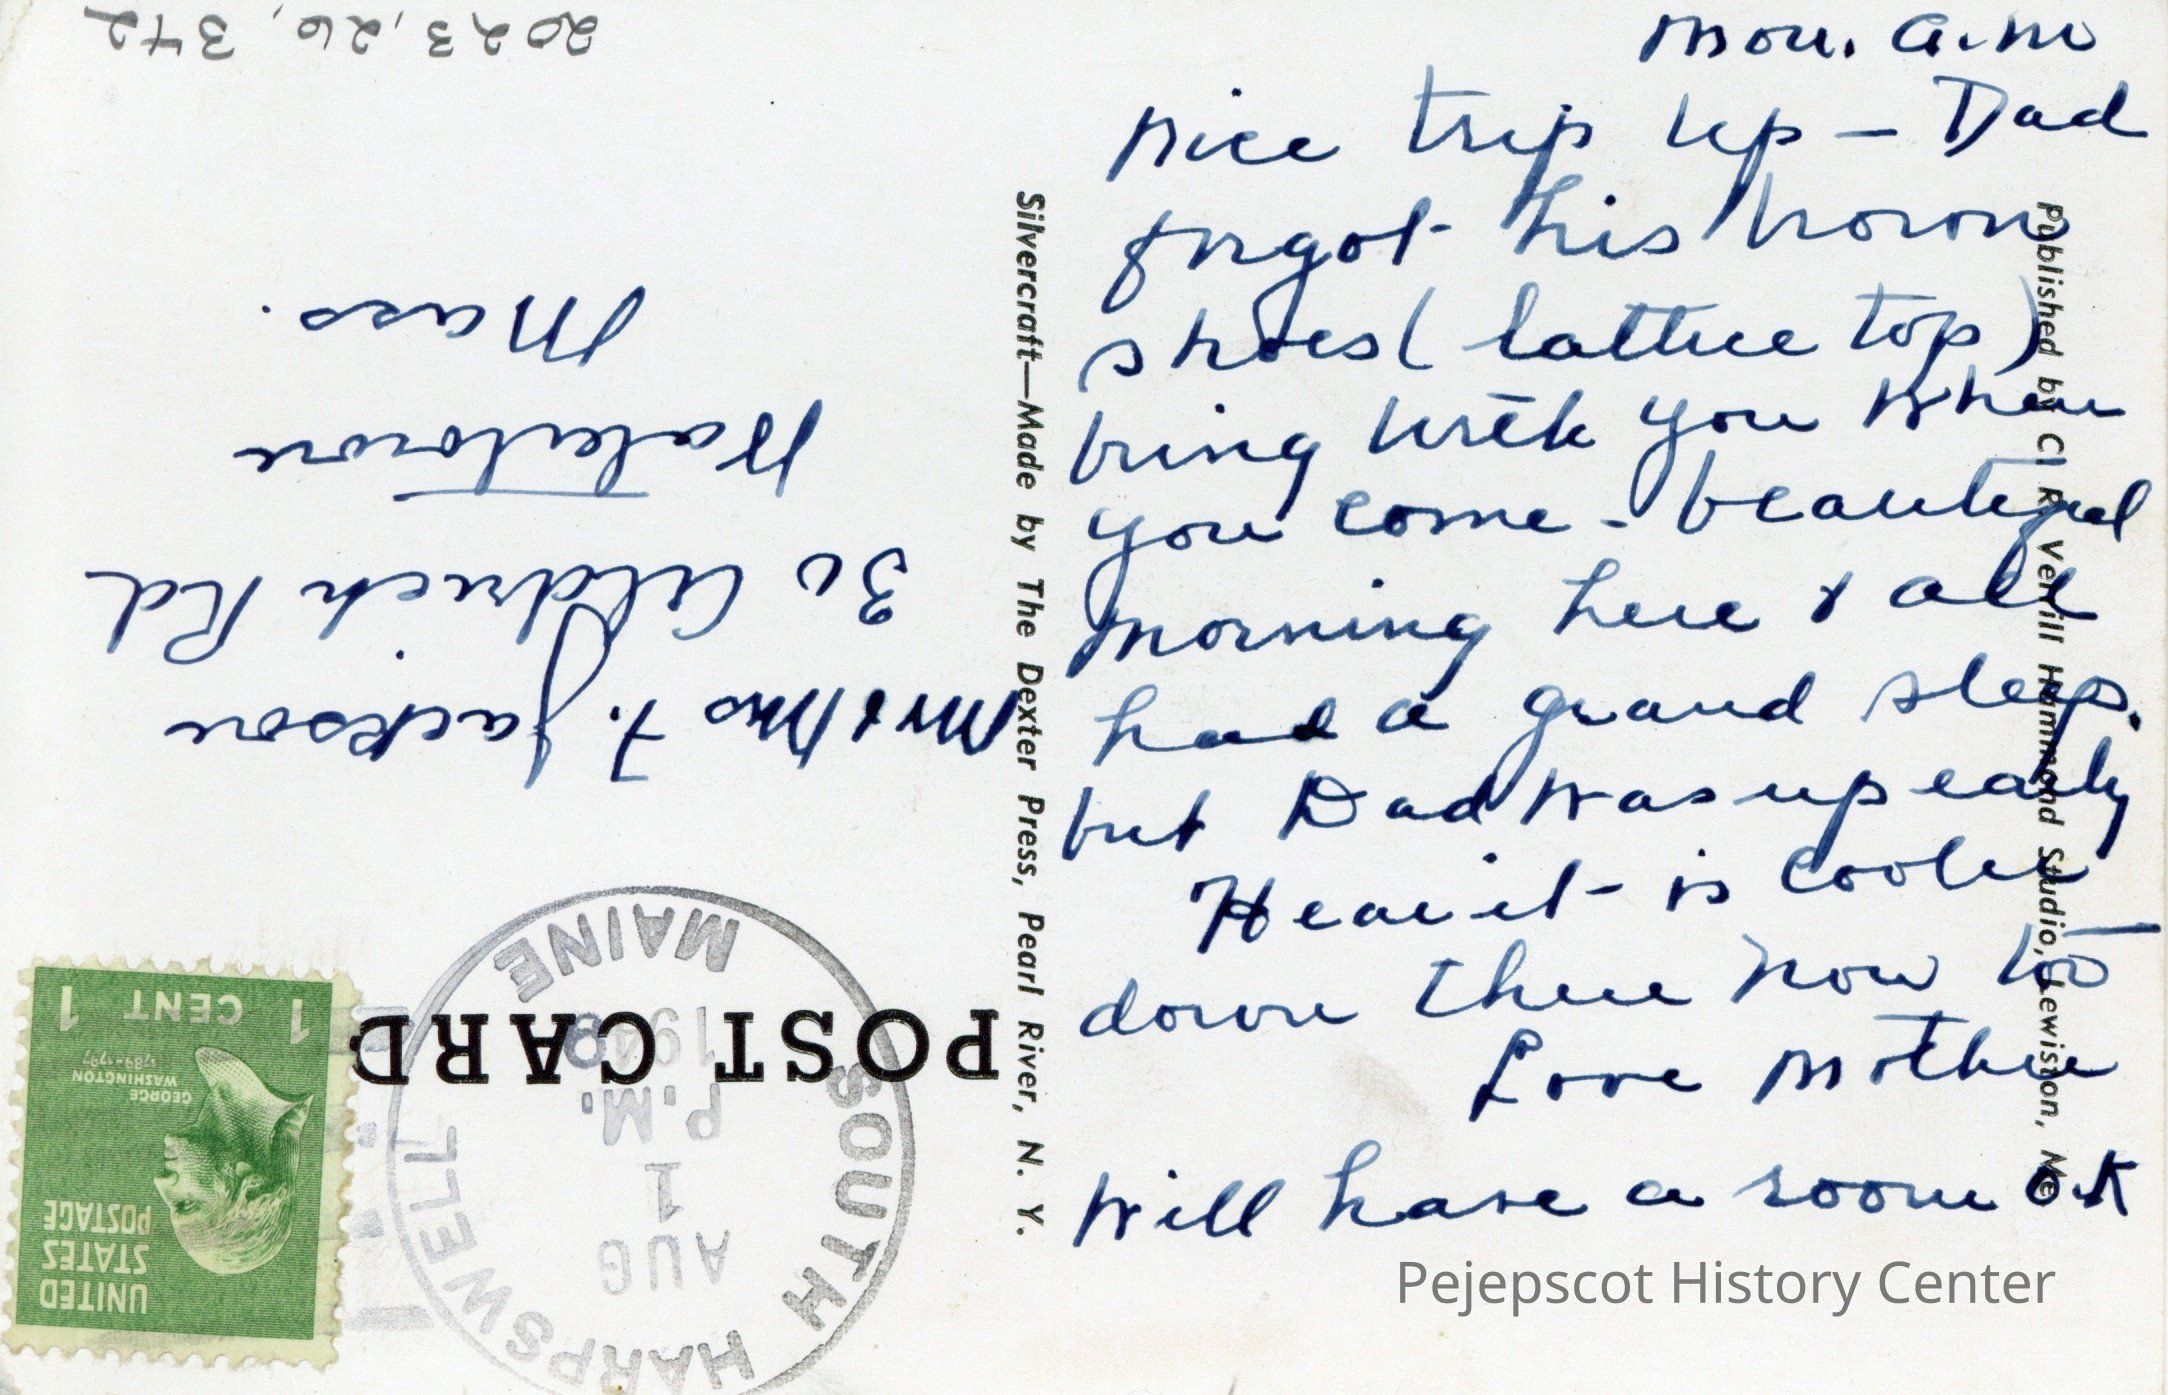 Mon. a.m
Nice trip up — Dad
forgot his brown
shoes (lattice top)
bring with you when
you come - beautiful
morning here & all
had a grand sleep.
but Dad was up early
Hear it is cooler
down there now too
Love Mother
Will have a room O.K
Pejepscot History Center
Published by Cl R. Verrill Hammond Studio, Lewiston, Me
Silvercraft—Made by The Dexter Press, Pearl River, N. Y.
POST CARD
UNITED
STATES
POSTAGE
GEORGE
WASHINGTON
1789-1797
1 CENT 1
SOUTH HARPSWELL
AUG
1
P.M.
MAINE
Mr & Mrs F. Jackson
Aldrich Rd
Watertown
Mass.
2023.26.342